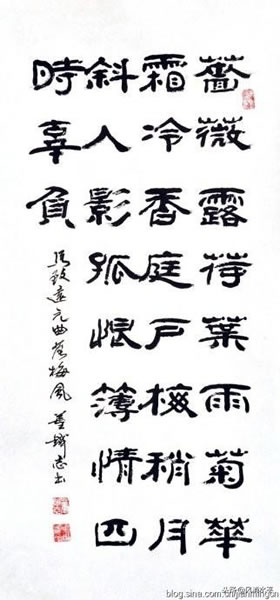 薔薇露荷葉雨菊華
霜冷香庭戶梅梢月
斜人影孤恨薄情四
時辜負
馬致遠元曲落梅風 志书
头条
blog.sina.com.cn/jianmingcn